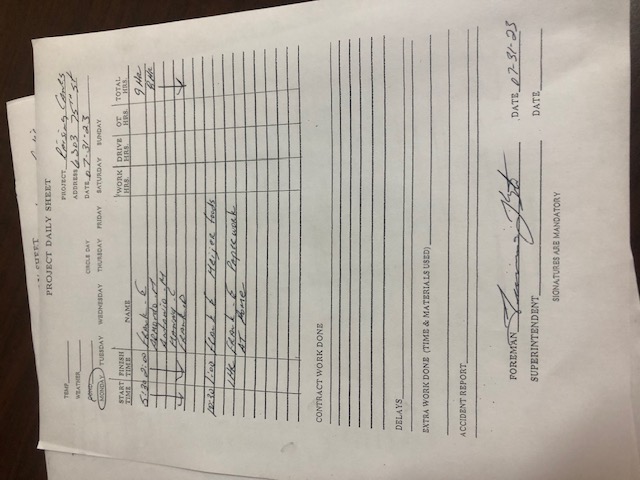 PROJECT DAILY SHEET
TEMP
PROJECT Raising Canes
WEATHER
ADDRESS 6303 75TH ST
COND
CIRCLE DAY
DATE 07-31-23
MONDAY TUESDAY WEDNESDAY THURSDAY FRIDAY SATURDAY SUNDAY
START TIME FINISH TIME NAME WORK HRS. DRIVE HRS. OT HRS. TOTAL HRS.
5:30 2:00 FRANK . E 9 HR
ARMONDO . M 8 HR
Antonio . M
MANNY . C
FRANK . D
10:30 1:00 FRANK E Meijer foods
1 HR FRANK . E Paperwork
AT Home
CONTRACT WORK DONE
DELAYS
EXTRA WORK DONE (TIME & MATERIALS USED)
ACCIDENT REPORT
FOREMAN DATE 07-31-23
SUPERINTENDENT DATE
SIGNATURES ARE MANDATORY